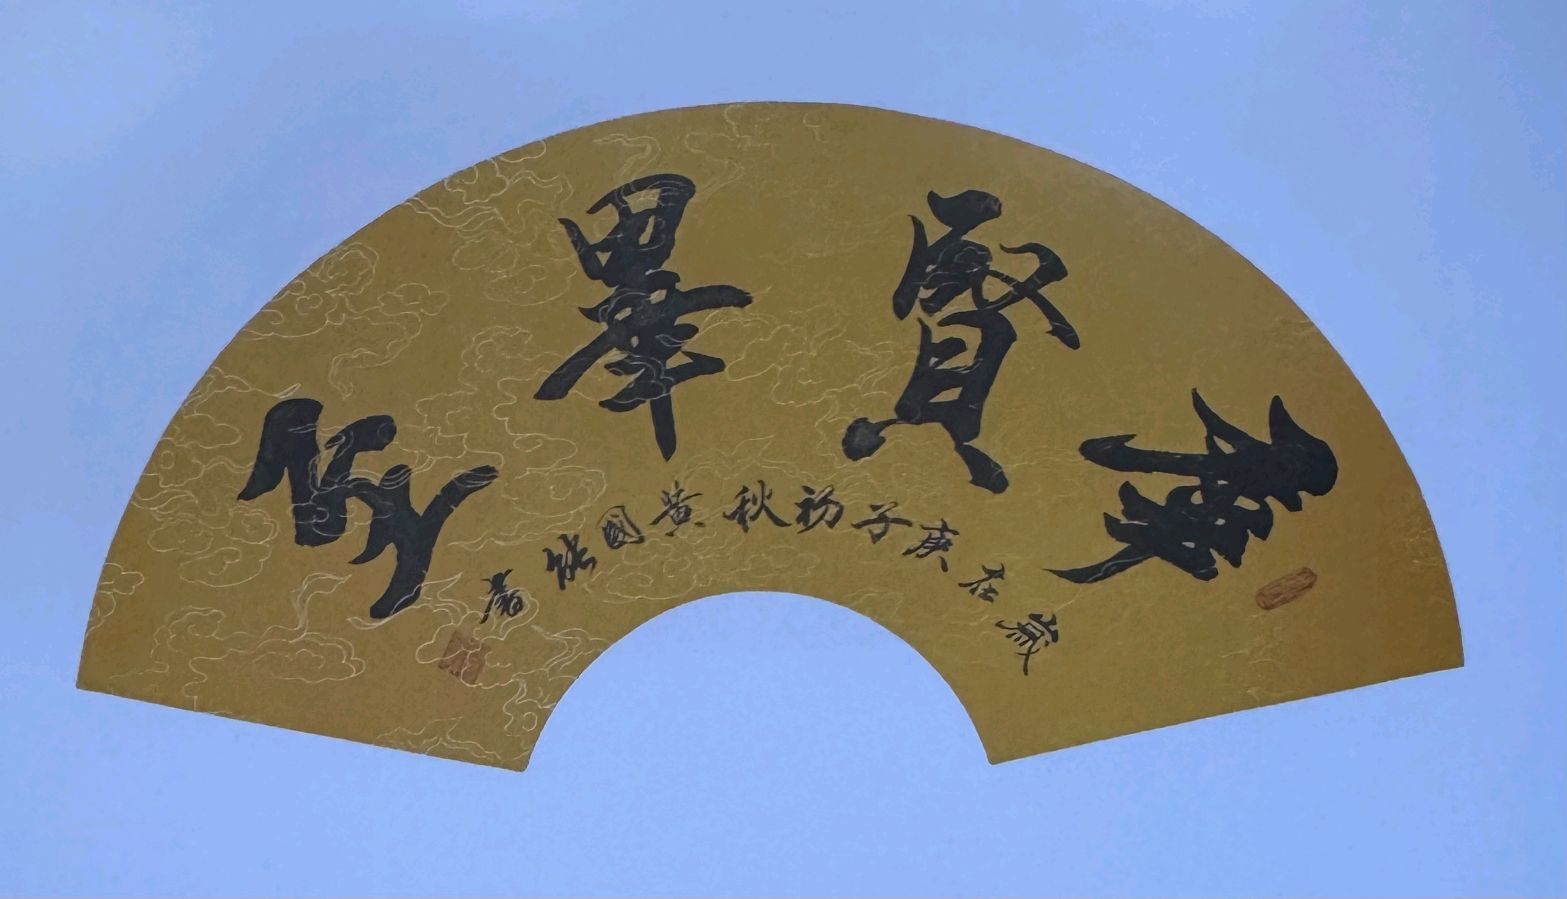 群賢畢至
歲在庚子初秋黃國能書